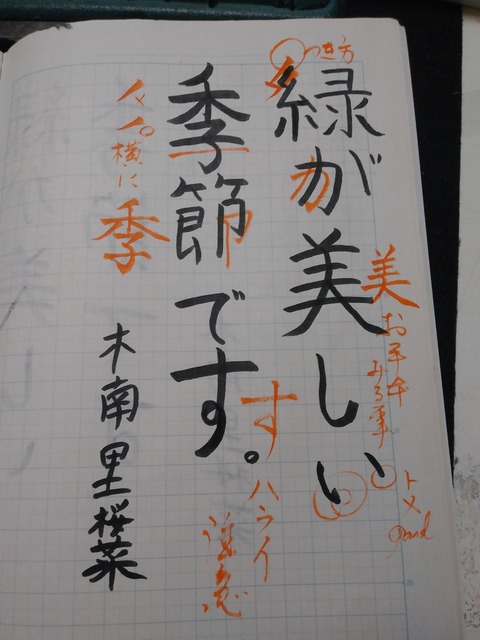 緑が美しい
季節です。
木南里桜菜
つき方
美
お手本
みる事
トメ
good
す
ハライ
注意
横に
季